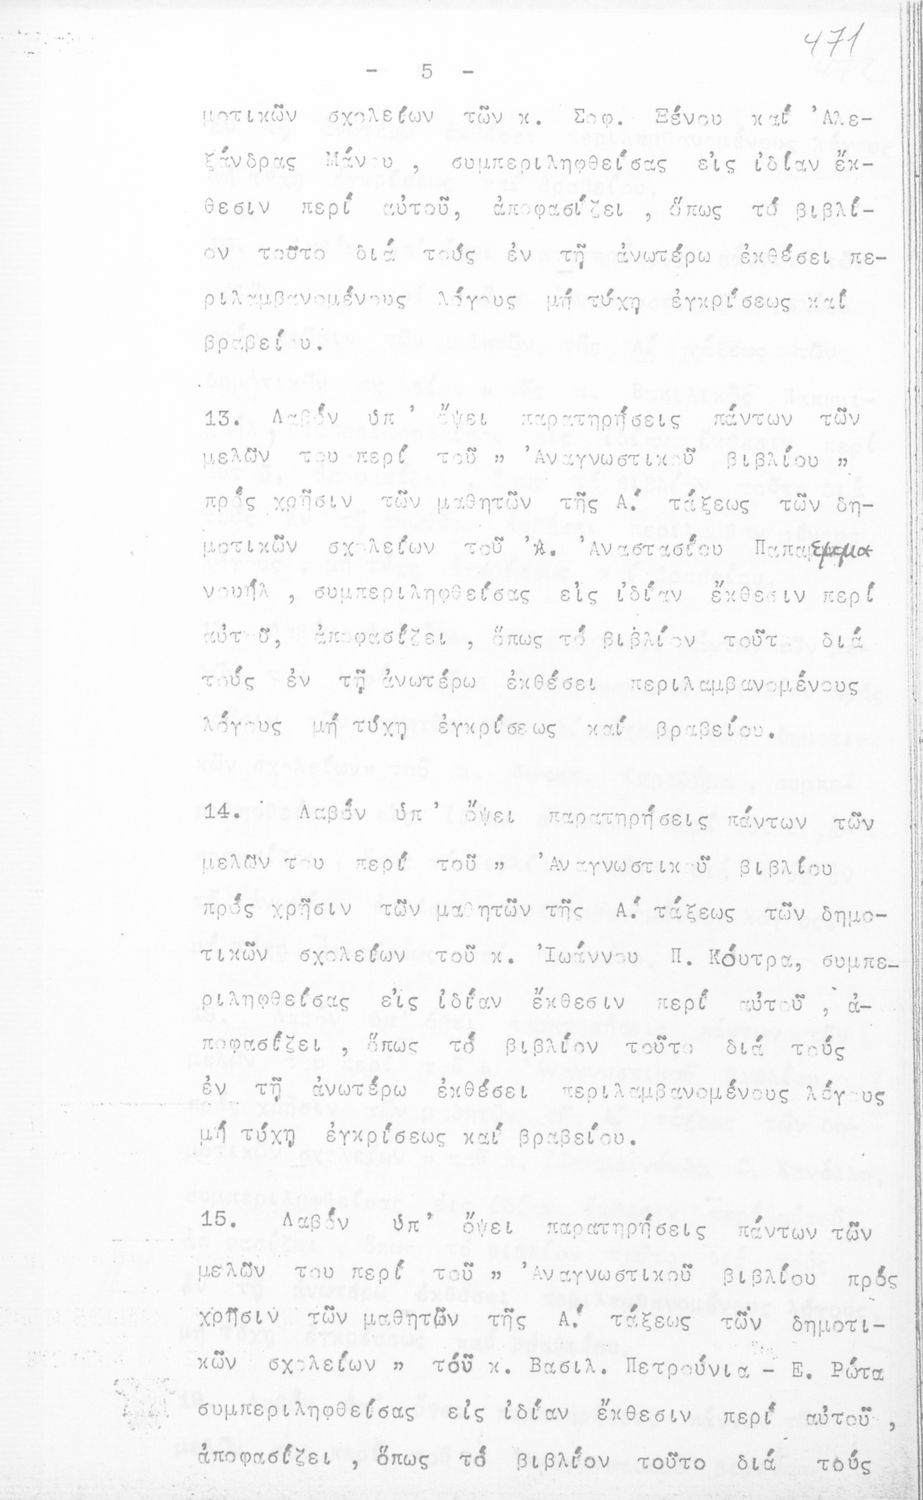 471
- 5 -
μοτικῶν σχολείων τῶν κ. Σοφ. Ξένου καί Ἀλε-
ξάνδρας Μάνου , συμπεριληφθείσας εἰς ἰδίαν ἔκ-
θεσιν περί αὐτοῦ, ἀποφασίζει , ὅπως τό βιβλί-
ον τοῦτο διά τούς ἐν τῇ ἀνωτέρω ἐκθέσει πε-
ριλαμβανομένους λόγους μή τύχῃ ἐγκρίσεως καί
βραβείου.
13. Λαβόν ὑπ' ὄψει παρατηρήσεις πάντων τῶν
μελῶν του περί τοῦ " Ἀναγνωστικοῦ βιβλίου "
πρός χρῆσιν τῶν μαθητῶν τῆς Α' τάξεως τῶν δη-
μοτικῶν σχολείων τοῦ κ. Ἀναστασίου
νουήλ , συμπεριληφθείσας εἰς ἰδίαν ἔκθεσιν περί
αὐτοῦ, ἀποφασίζει , ὅπως τό βιβλίον τοῦτο διά
τούς ἐν τῇ ἀνωτέρω ἐκθέσει περιλαμβανομένους
λόγους μή τύχῃ ἐγκρίσεως καί βραβείου.
14. Λαβόν ὑπ' ὄψει παρατηρήσεις πάντων τῶν
μελῶν του περί τοῦ " Ἀναγνωστικοῦ βιβλίου
πρός χρῆσιν τῶν μαθητῶν τῆς Α' τάξεως τῶν δημο-
τικῶν σχολείων τοῦ κ. Ἰωάννου Π. Κόυτρα, συμπε-
ριληφθείσας εἰς ἰδίαν ἔκθεσιν περί αὐτοῦ , ἀ-
ποφασίζει , ὅπως τό βιβλίον τοῦτο διά τούς
ἐν τῇ ἀνωτέρω ἐκθέσει περιλαμβανομένους λόγους
μή τύχῃ ἐγκρίσεως καί βραβείου.
15. Λαβόν ὑπ' ὄψει παρατηρήσεις πάντων τῶν
μελῶν του περί τοῦ " Ἀναγνωστικοῦ βιβλίου πρός
χρῆσιν τῶν μαθητῶν τῆς Α' τάξεως τῶν δημοτι-
κῶν σχολείων " τοῦ κ. Βασιλ. Πετρούνια - Ε. Ρώτα
συμπεριληφθείσας εἰς ἰδίαν ἔκθεσιν περί αὐτοῦ ,
ἀποφασίζει , ὅπως τό βιβλίον τοῦτο διά τούς